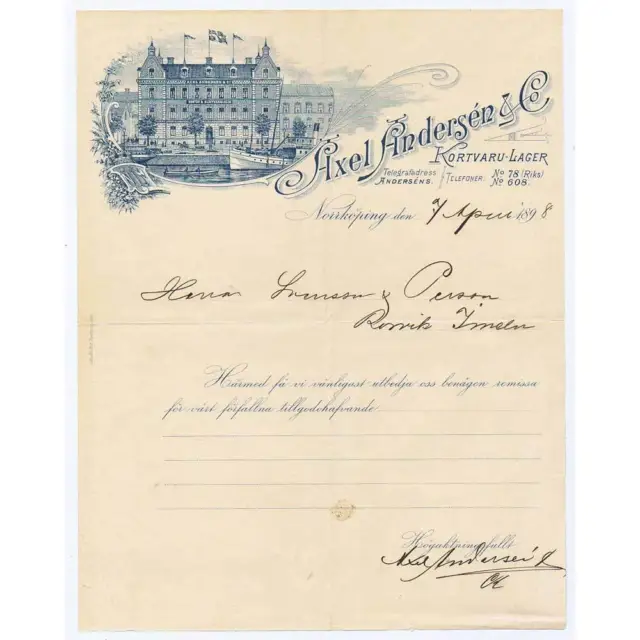 Axel Andersén & Co
Kortvaru-Lager
Telegrafadress
Anderséns.
Telefoner: No 78 (Riks)
No 608.
Norrköping den 7/ April 1898
Herrar Svensson & Person
Härmed få vi vänligast utbedja oss benägen remissa
för vårt förfallna tillgodohafvande
Högaktningsfullt
Axel Andersén &
Co